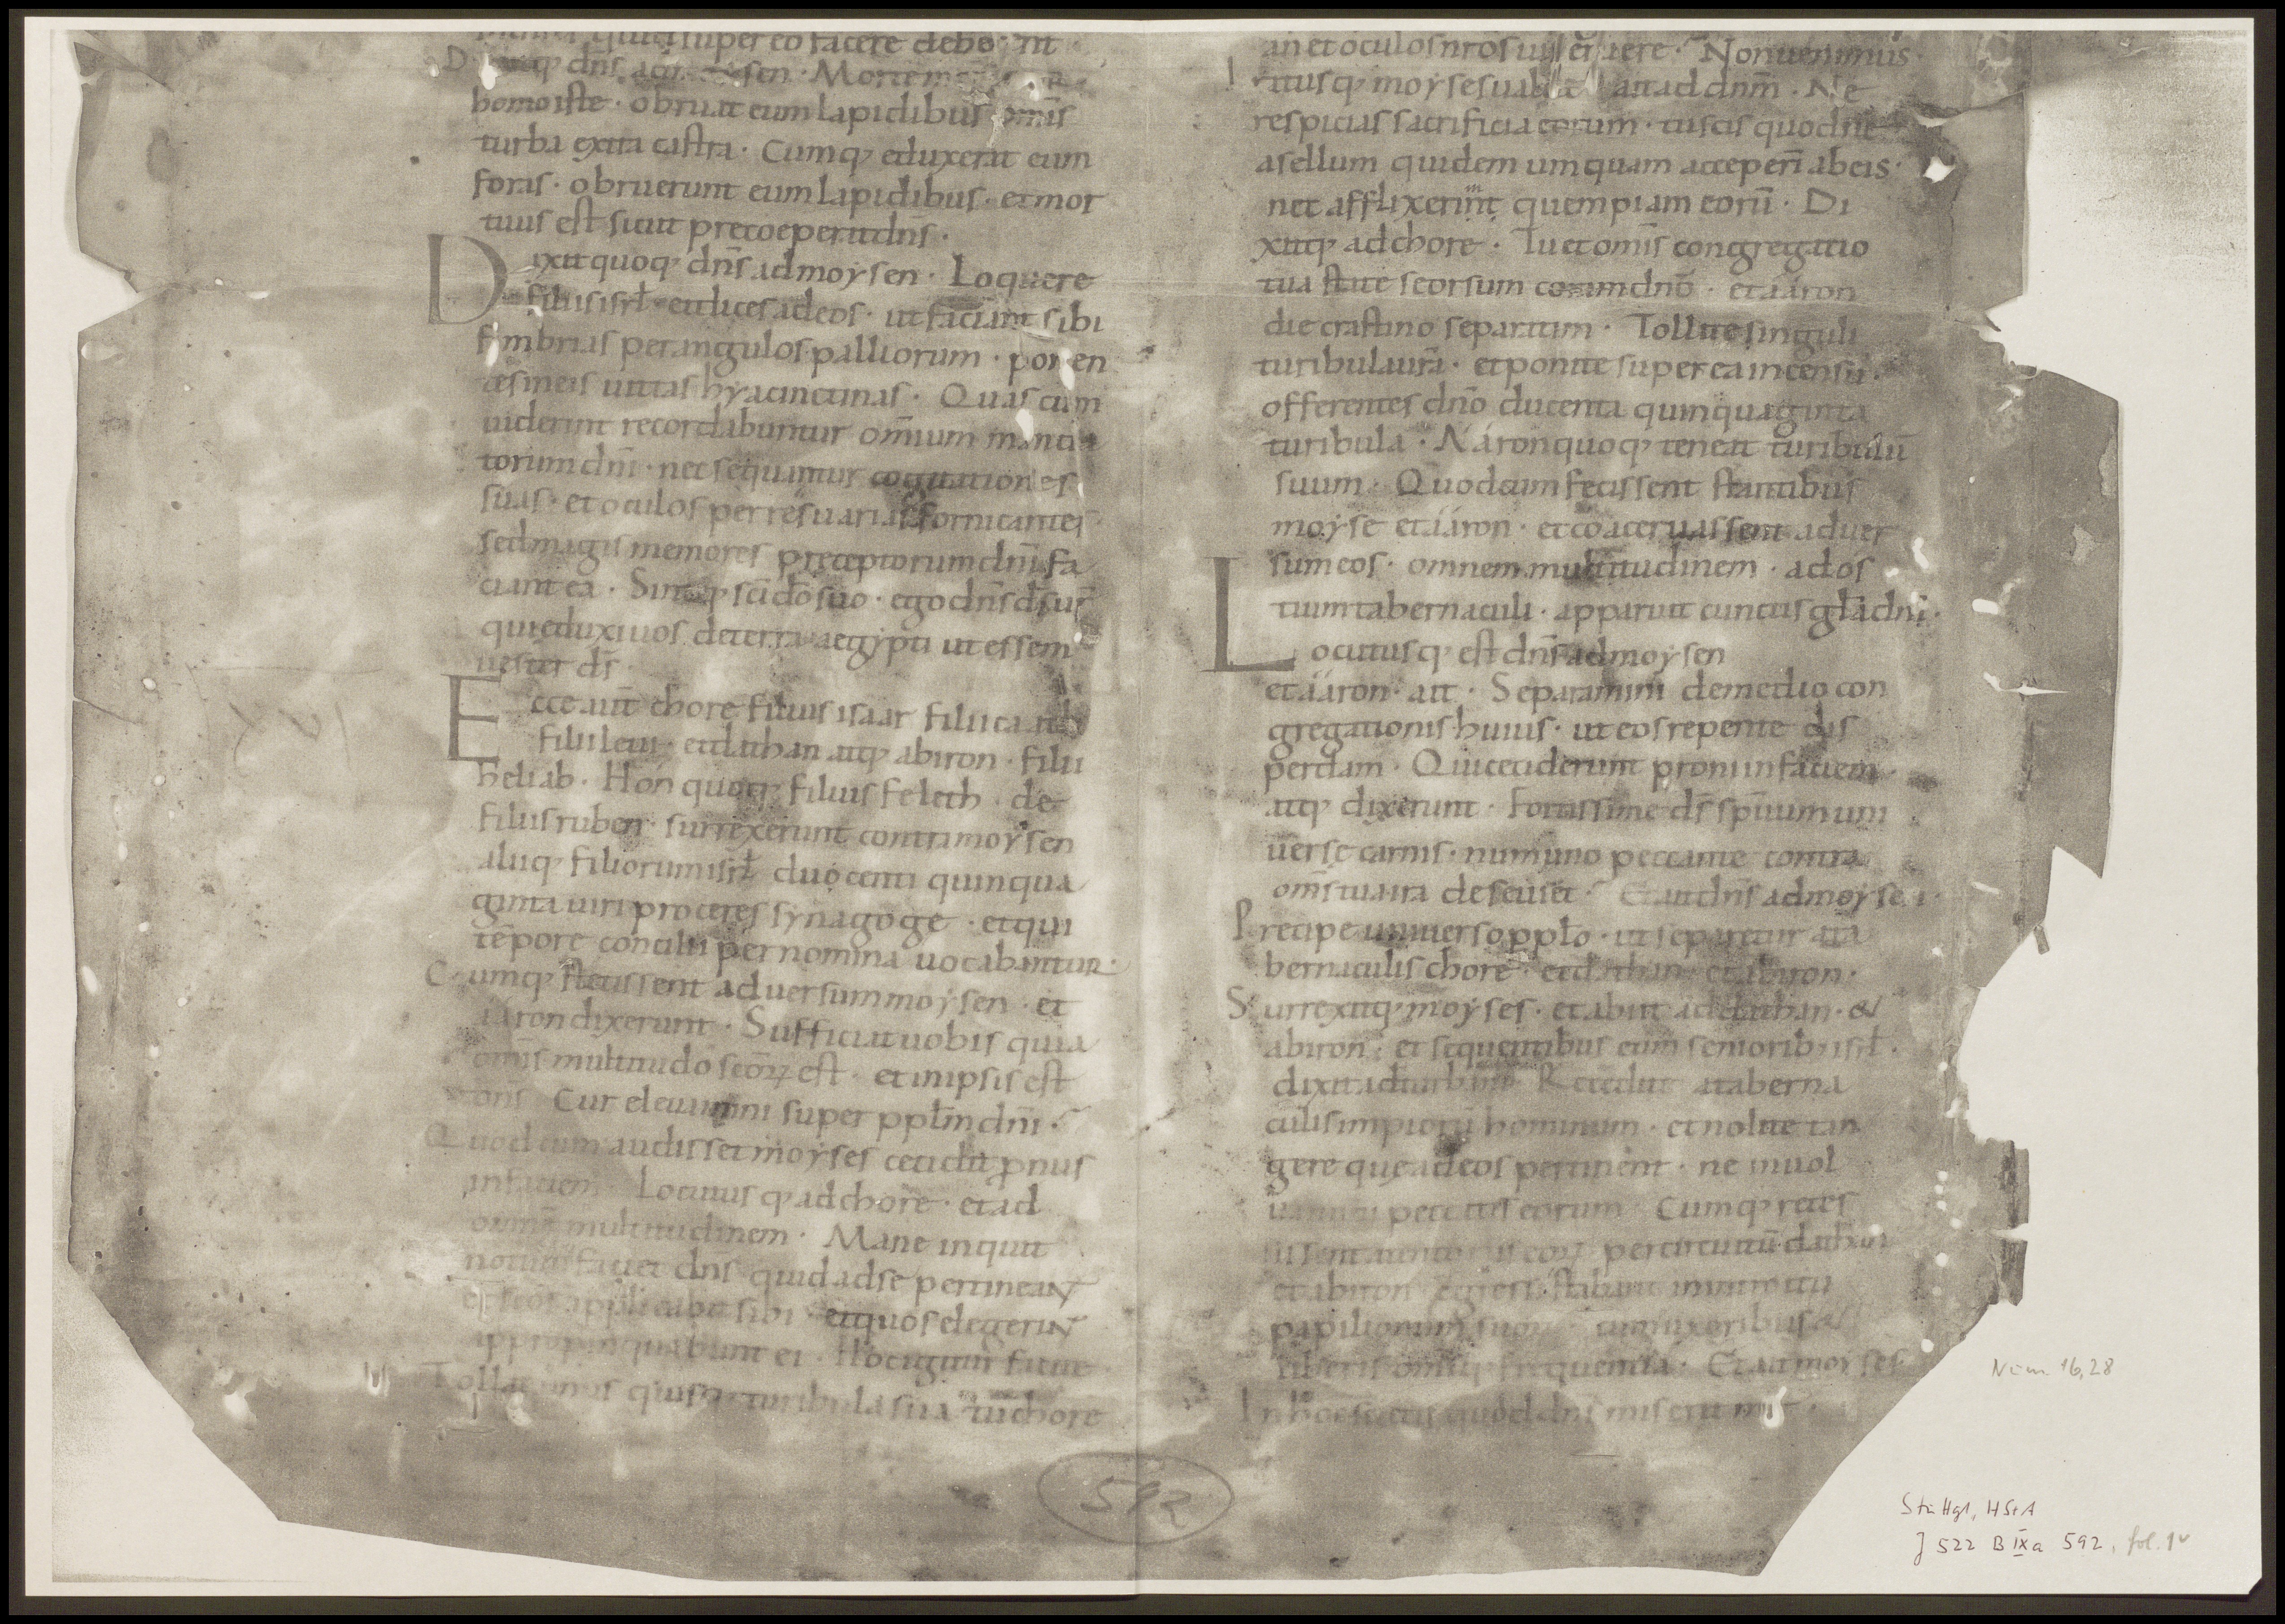 super eo facere deber nt
dn̄s ad sen · Morte
homo iste · obruat eum lapidibus om̄is
turba extra castra · Cumq; eduxerat eum
foras · obruerunt eum lapidibus · et mor
tuus est sicut preceoperat dn̄s ·
Dixit quoq; dn̄s ad moysen · Loquere
filiis isrł · et dices ad eos · ut faciant sibi
fimbrias per angulos palliorum · ponen
tes in eis uittas hyacinctinas · Quas cum
uiderint recordabuntur om̄ium manda
torum dn̄i · nec sequantur cogitationes
suas · et oculos per res uarias fornicantes ·
sed magis memores preceptorum dn̄i fa
ciant ea · Sintq; sc̄i dō suo · ego dn̄s ds̄ ur̄
qui eduxi uos de terra aegypti ut essem
uester ds̄ ·
Ecce aut̄ chore filius isaar filii caath
filii leui · et dathan atq; abiron · filii
heliab · Hon quoq; filius feleth · de
filiis ruben · surrexerunt contra moysen
aliiq; filiorum isrł duocenti quinqua
ginta uiri proceres synagoge · et qui
tēpore concilii per nomina uocabantur ·
Cumq; stetissent aduersum moysen · et
aaron dixerunt · Sufficiat uobis quia
om̄is multitudo sc̄oꝝ est · et in ipsis est
dn̄s Cur eleuamini super ppłm dn̄i ·
Quod cum audisset moyses cecidit ꝓnus
in faciem · Locutus q; ad chore · et ad
omnē multitudinem · Mane inquit
notum faciet dn̄s qui ad se pertineant
et sc̄os applicabit sibi · et quos elegerint
appropinquabunt ei · Hoc igitur facite
Tollat unus quisq; turibula sua tu chore
an et oculos nr̄os uis eruere · Non uenimus ·
Iratus q; moyses ualde ait ad dn̄m · Ne
respicias sacrificia eorum · tu scis quod ne
asellum quidem umquam acceperī ab eis ·
nec afflixerim quempiam eorū · Di
xitq; ad chore · Tu et om̄is congregatio
tua state seorsum coram dn̄o · et aaron
die crastino separatim · Tollite singuli
turibula ur̄a · et ponite super ea incensū ·
offerentes dn̄o ducenta quinquaginta
turibula · Aaron quoq; teneat turibulū
suum · Quod cum fecissent stantibus
moyse et aaron · et coaceruassent aduer
sum eos · omnem multitudinem · ad os
tium tabernaculi · apparuit cunctis głā dn̄i ·
Locutusq; est dn̄s ad moysen
et aaron · ait · Separamini de medio con
gregationis huius · ut eos repente dis
perdam · Qui ceciderunt proni in faciem ·
atq; dixerunt · Fortissime ds̄ sp̄ituum uni
uerse carnis · num uno peccante contra
om̄s tua ira deseuiet · Et ait dn̄s ad moysen ·
Precipe uniuerso ppło · ut separetur a ta
bernaculis chore · et dathan · et abiron ·
Surrexitq; moyses · et abiit ad dathan · &
abiron · et sequentibus eum seniorib; isrł ·
dixit ad turbam Recedite a taberna
culis impiorū hominum · et nolite tan
gere que ad eos pertinent · ne inuol
uamini peccatis eorum Cumq; reces
sissent a tentoriis eoꝝ per circuitū dathan
et abiron egressi stabant in introitu
papilionum suoꝝ cum uxoribus &
liberis om̄iq; frequentia · Et ait moyses
In hoc scietis quod dn̄s miserit me ·
592
Num 16,28
Stuttgt, HStA
J 522 B IXa 592, fol. 1v